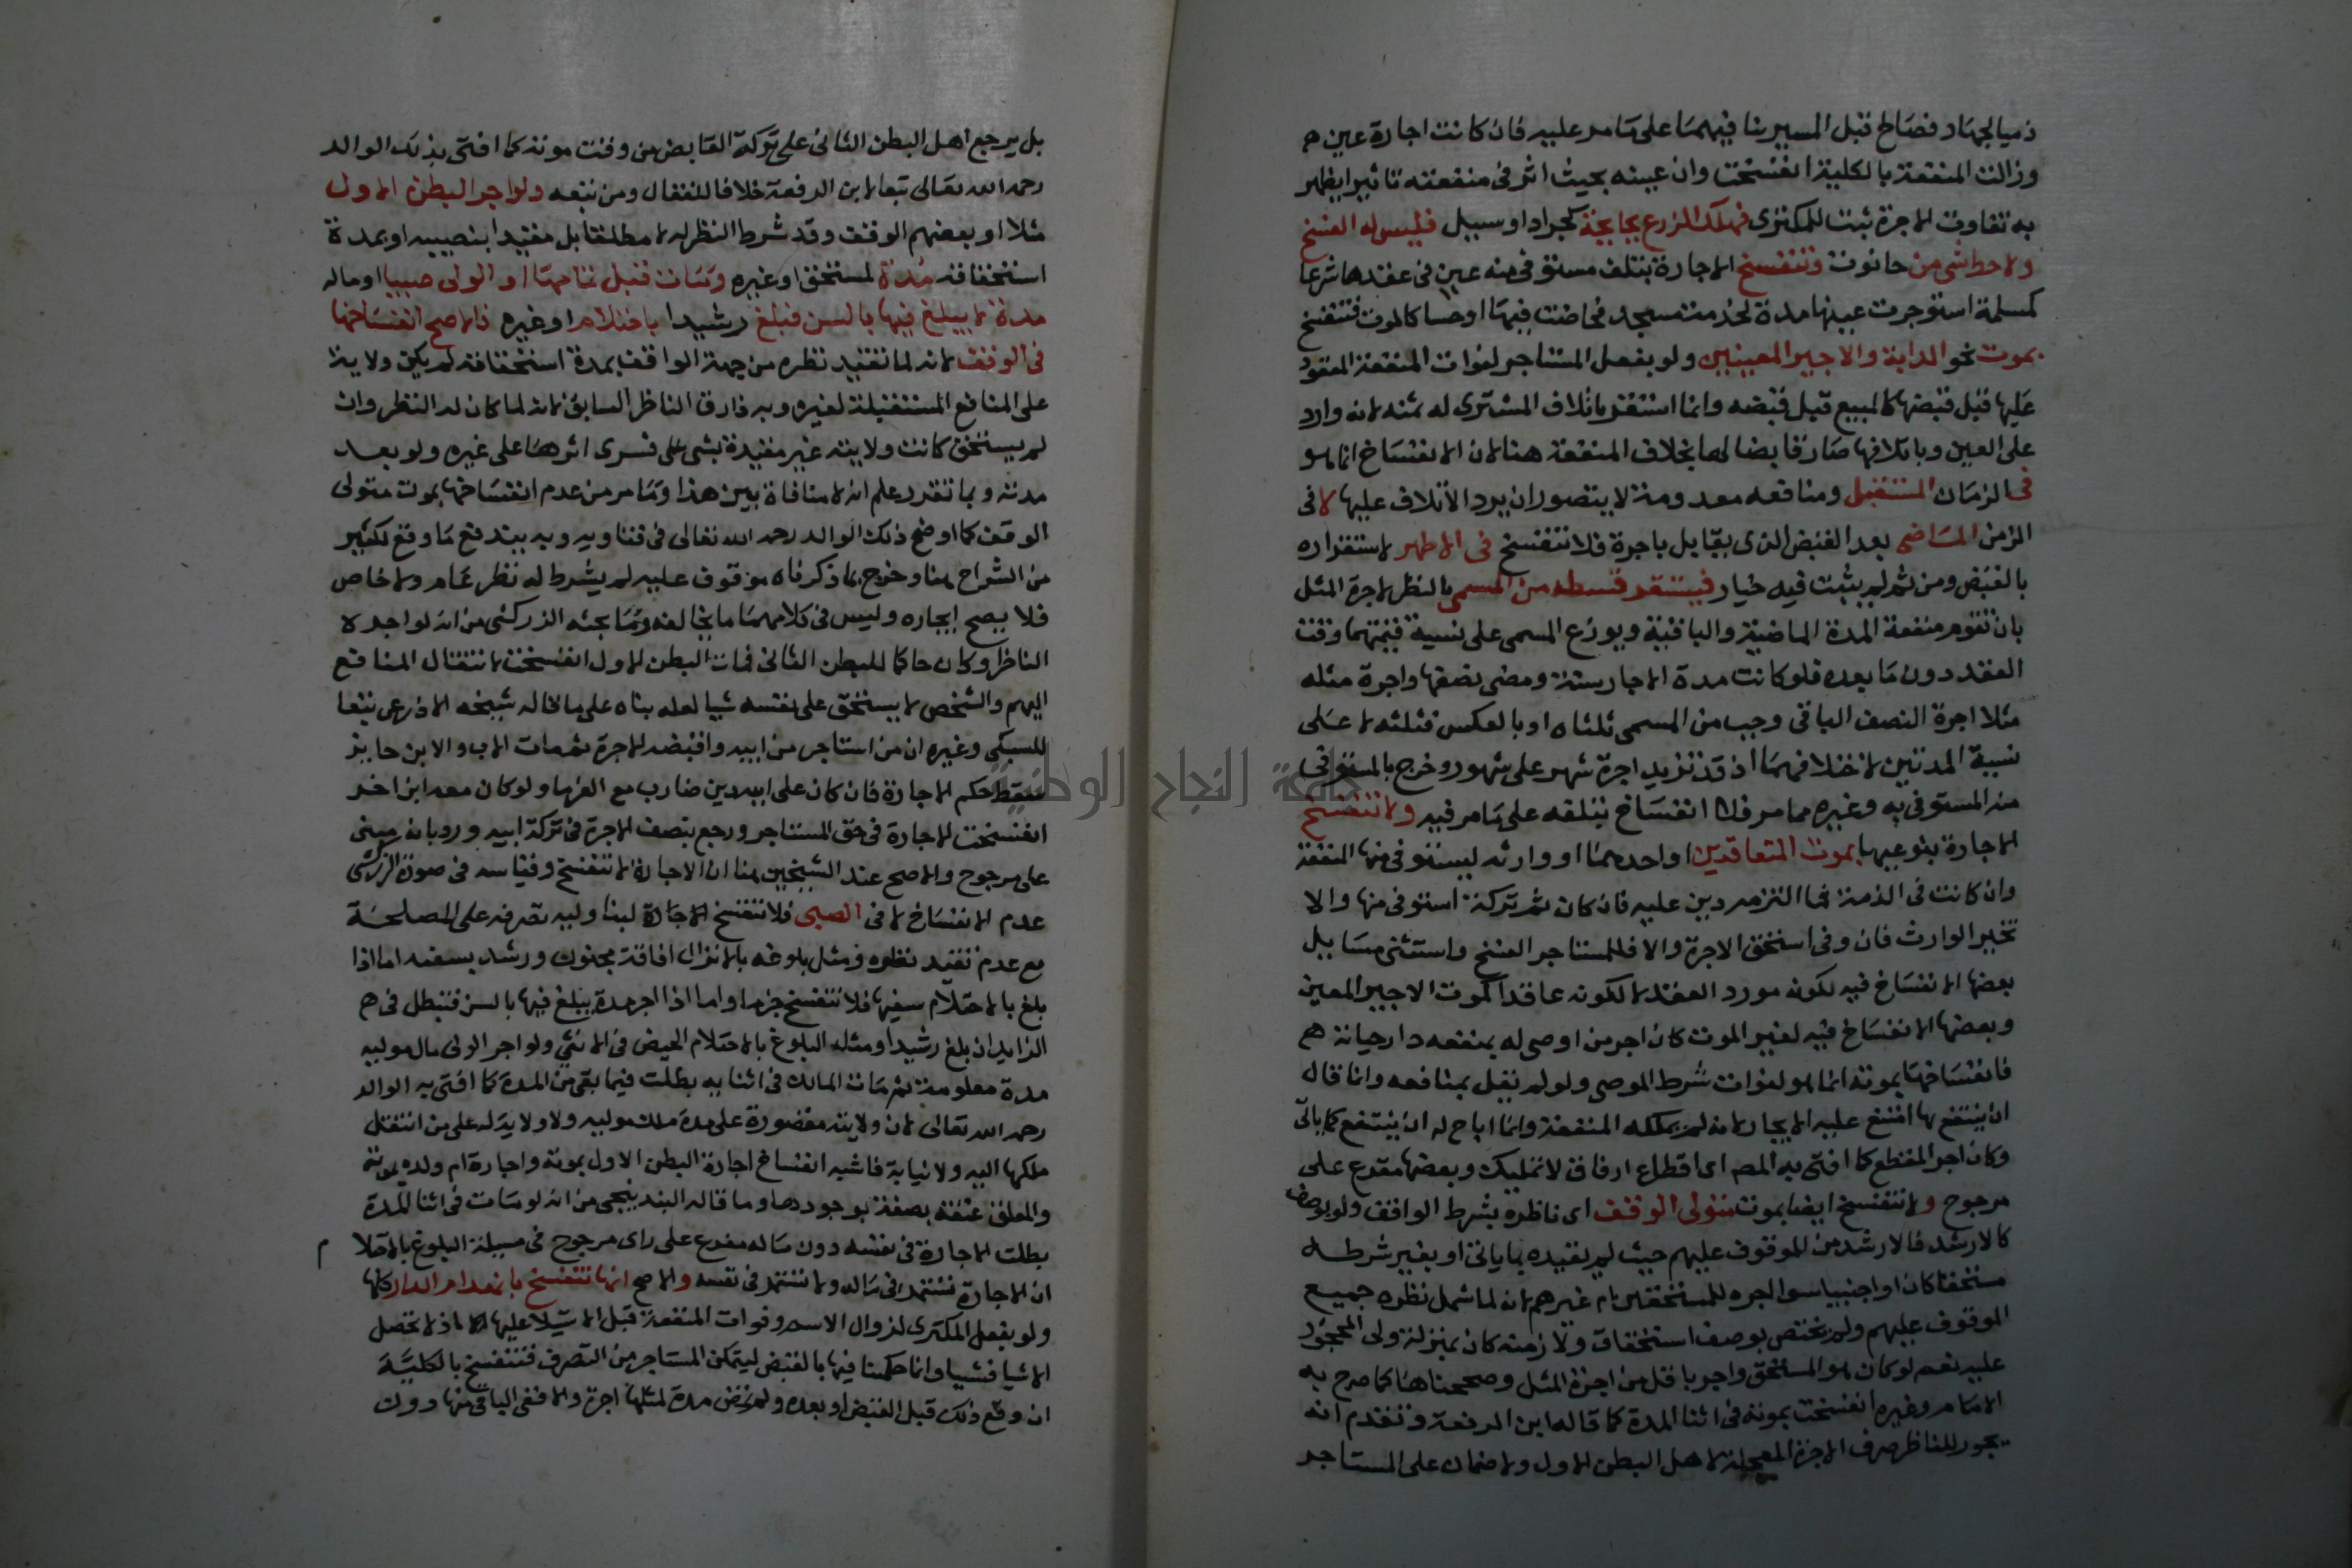 ذميا لجهاد فصالح قبل المسير بنا فيهما على ما مر عليه فان كانت اجارة عين
وزالت المنفعة بالكلية انفسخت وان عيبه بحيث اثر فى منفعته تاثيرا يظهر
به تفاوت الاجرة ثبت للمكترى فهلك الزرع بجايحة كجراد او سيل فليس له الفسخ
ولا حط شى من حانوت وتنفسخ الاجارة بتلف مستوفى منه عين فى عقدها شرعا
كمسلمة استوجرت عينها مدة لخدمة مسجد فحاضت فيها او حسا كالموت فتنفسخ
بموت نحو الدابة والاجير المعينين ولو بفعل المستاجر لفوات المنفعة المعقود
عليها قبل قبضها كالمبيع قبل قبضه وانما استقر باتلاف المشترى له ثمنه لانه وارد
على العين وباتلافها صار قابضا لها بخلاف المنفعة هنا لان الانفساخ انما هو
فى الزمان المستقبل ومنافعه معدومة لا يتصور ان يرد الاتلاف عليها لا فى
الزمن الماضى بعد القبض الذى يقابل باجرة فلا تنفسخ فى الاظهر لاستقراره
بالقبض ومن ثم لم يثبت فيه خيار فيستقر قسطه من المسمى بالنظر لاجرة المثل
بان تقوم منفعة المدة الماضية والباقية ويوزع المسمى على نسبة قيمتهما وقت
العقد دون ما بعده فلو كانت مدة الاجارة سنة ومضى نصفها واجرة مثله
مثلا اجرة النصف الباقى وجب من المسمى ثلثاه او بالعكس فثلثه لا على
نسبة المدتين لاختلافهما اذ قد تزيد اجرة شهر على شهور وخرج بالمستوفى
منه المستوفى به وغيره مما مر فلا انفساخ بتلفه على ما مر فيه ولا تنفسخ
الاجارة بنوعيها بموت المتعاقدين او احدهما او وارثه ليستوفى منها المنفعة
وان كانت فى الذمة فما التزمه دين عليه فان كان ثم تركة استوفى منها والا
تخير الوارث فان وفى استحق الاجرة والا فللمستاجر الفسخ واستثنى مسايل
بعضها الانفساخ فيه لكونه مورد العقد لا لكونه عاقدا كموت الاجير المعين
وبعضها الانفساخ فيه لغير الموت كان اجر من اوصى له بمنفعه دار حياته
فانفساخها بموته انما هو لفوات شرط الموصى ولو لم يقل بمنافعه وانما قال
ان ينتفع بها امتنع عليه الايجار لانه لم يملكه المنفعة وانما اباح له ان ينتفع كما ياتى
وكان اجر المقطع كما افتى به المصـ اى اقطاع ارفاق لا تمليك وبعضها مفرع على
مرجوح ولا تنفسخ ايضا بموت متولى الوقف اى ناظره بشرط الواقف ولو بوصف
كالارشد فالارشد من الموقوف عليهم حيث لم يقيده بما ياتى او بغير شرطه
مستحقا كان او اجنبيا سوا اجره للمستحقين ام غيرهم لانه لما شمل نظره جميع
الموقوف عليهم ولم يختص بوصف استحقاق ولا زمنه كان بمنزلة ولى المحجور
عليه نعم لو كان هو المستحق واجر باقل من اجرة المثل وصححناها كما صرح به
الامام وغيره انفسخت بموته فى اثنا المدة كما قاله ابن الرفعة وتقدم انه
يجوز للناظر صرف الاجرة المعجلة لاهل البطن الاول ولا ضمان على المستاجر
بل يرجع اهل البطن الثانى على تركة القابض من وقت موته كما افتى بذلك الوالد
رحمه الله تعالى تبعا لابن الرفعة خلافا للقفال ومن تبعه ولو اجر البطن الاول
مثلا او بعضهم الوقف وقد شرط النظر له لا مطلقا بل مقيدا بنصيبه او بمدة
استحقاقه مدة لمستحق او غيره ومات قبل تمامها او الولى صبيا او ماله
مدة لا يبلغ فيها بالسن فبلغ رشيدا باحتلام او غيره فالاصح انفساخها
فى الوقف لانه لما تقيد نظره من جهة الواقف بمدة استحقاقه لم يكن ولاية
على المنافع المستقبلة لغيره وبه فارق الناظر السابق لانه لما كان له النظر وان
لم يستحق كانت ولايته غير مقيدة بشى على فسرى اثرها على غيره ولو بعد
مدته وبما تقرر علم انه لا منافاة بين هذا وما مر من عدم انفساخها بموت متولى
الوقف كما اوضح ذلك الوالد رحمه الله تعالى فى فتاويه وبه يندفع ما وقع لكثير
من الشراح هنا وخرج بما ذكرناه موقوف عليه لم يشرط له نظر عام ولا خاص
فلا يصح ايجاره وليس فى كلامهما ما يخالفه وما بحثه الزركشى من انه لو اجره لا
الناظر او كان حاكما للبطن الثانى فمات البطن الاول انفسخت لانتقال المنافع
اليهم والشخص لا يستحق على نفسه شيا لعله بناه على ما قاله شيخه الاذرعى تبعا
للسبكى وغيره ان من استاجر من ابيه واقبضه الاجرة ثم مات الاب والابن حايز
سقط حكم الاجارة فان كان على ابيه دين ضارب مع الغرما ولو كان معه ابن اخر
انفسخت الاجارة فى حق المستاجر ورجع بنصف الاجرة فى تركة ابيه ورد بانه مبنى
على مرجوح والاصح عند الشيخين هنا ان الاجارة لا تنفسخ وقياسه فى صورة الزركشى
عدم الانفساخ لا فى الصبى فلا تنفسخ الاجارة لبنا وليه تصرفه على المصلحة
مع عدم تقيد نظره ومثل بلوغه بالانزال افاقة مجنون ورشد بسفه اما اذا
بلغ بالاحتلام سفيها فلا تنفسخ جزما واما اذا اجر مدة يبلغ فيها بالسن فتبطل فى
الزايد ان بلغ رشيدا ومثله البلوغ بالاحتلام الحيض فى الانثى ولو اجر الولى مال موليه
مدة معلومة ثم مات المالك فى اثنايه بطلت فيما بقى من المدة كما افتى به الوالد
رحمه الله تعالى لان ولايته مقصورة على مدة ملك موليه ولا ولاية له على من انتقل
ملكها اليه ولا نيابة فاشبه انفساخ اجارة البطن الاول بموته واجارة ام ولده بموته
والمعلق عتقه بصفة بوجودها وما قاله البندنيجى من انه لو مات فى اثنا المدة
بطلت الاجارة فى نفسه دون ماله مفرع على راى مرجوح فى مسيلة البلوغ بالاحتلا م
ان الاجارة تستمر فى ماله ولا تستمر فى نفسه والاصح انها تنفسخ بانهدام الدار كلها
ولو بفعل المكترى لزوال الاسم وفوات المنفعة قبل الاستيلا عليها اذ لا تحصل
الا شيا فشيا وانما حكمنا فيها بالقبض ليتمكن المستاجر من التصرف فتنفسخ بالكلية
ان وقع ذلك قبل القبض او بعده ولم تمض مدة لمثلها اجرة والا ففى الباقى منها دون
جامعة النجاح الوطنية